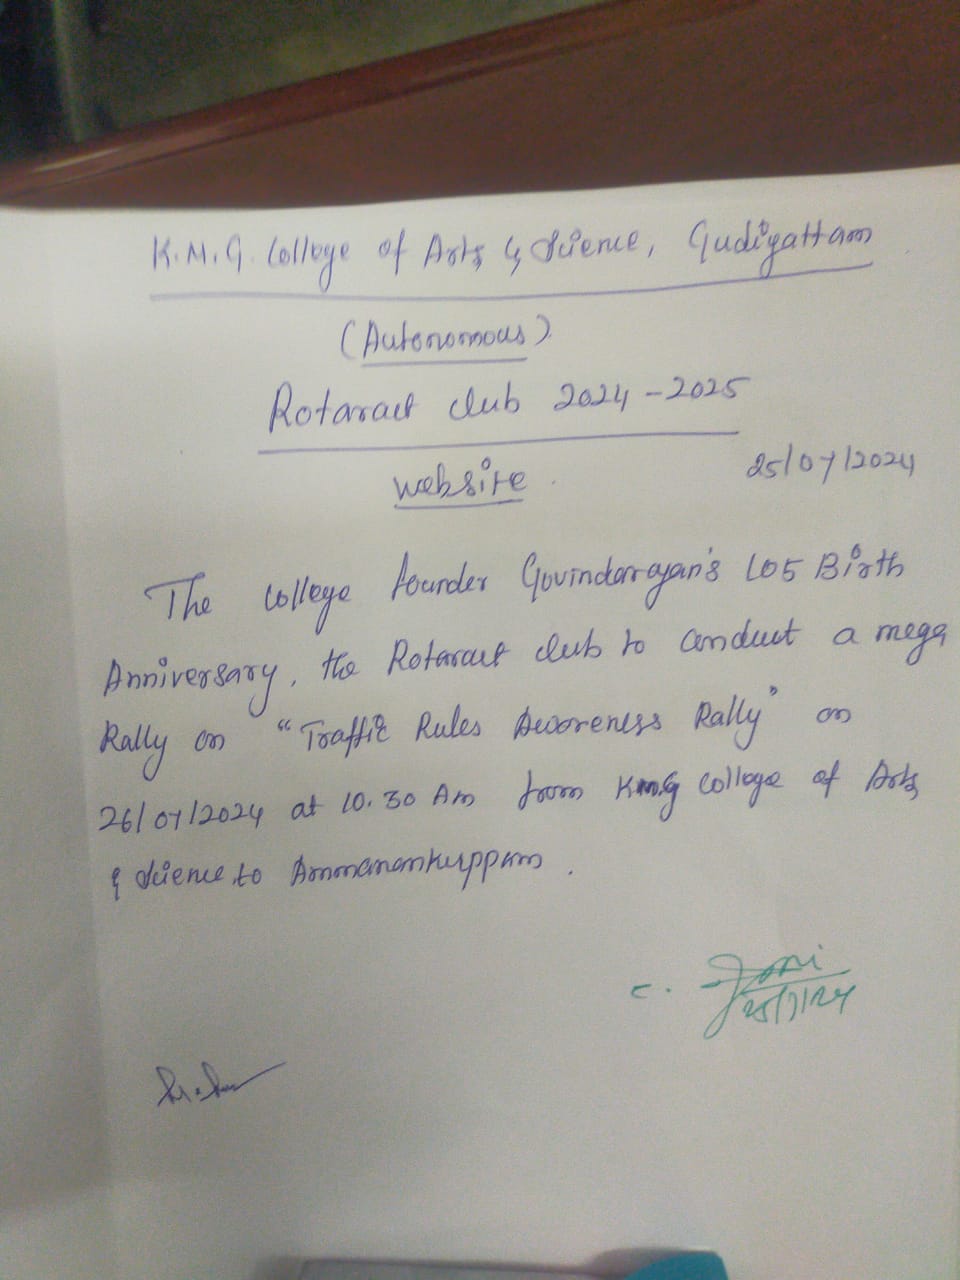 K.M.G. College of Arts & Science, Gudiyattam
(Autonomous)
Rotaract club 2024-2025
website
25/07/2024
The college founder Govindarajan's 105 Birth
Anniversary, the Rotaract club to conduct a mega
Rally on "Traffic Rules Awareness Rally" on
26/07/2024 at 10.30 Am from KMG College of Arts
& Science to Ammanankuppam.
C.
25/7/24